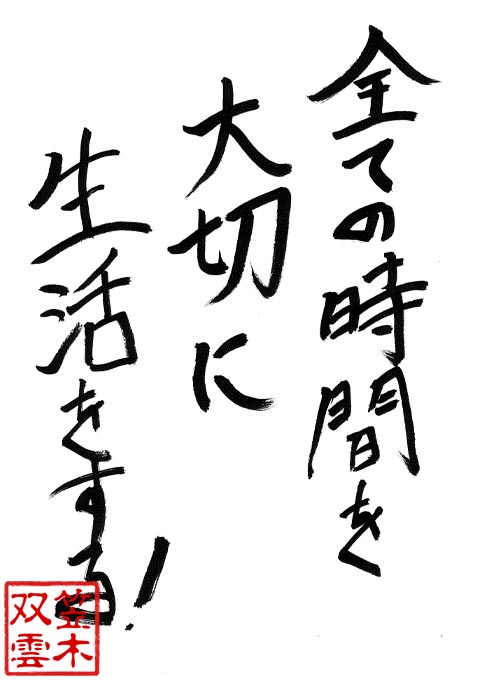 全ての時間を
大切に
生活をする!
笠木
双雲